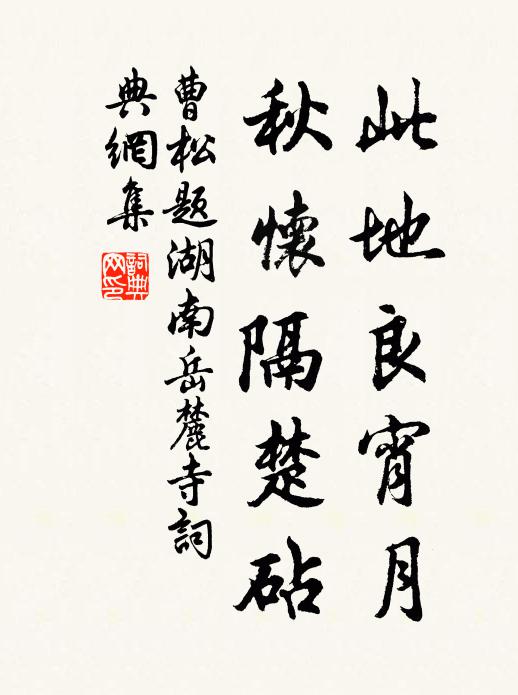 此地良宵月
秋懷隔楚砧
曹松题湖南岳麓寺詞
典網集
詞典
网印